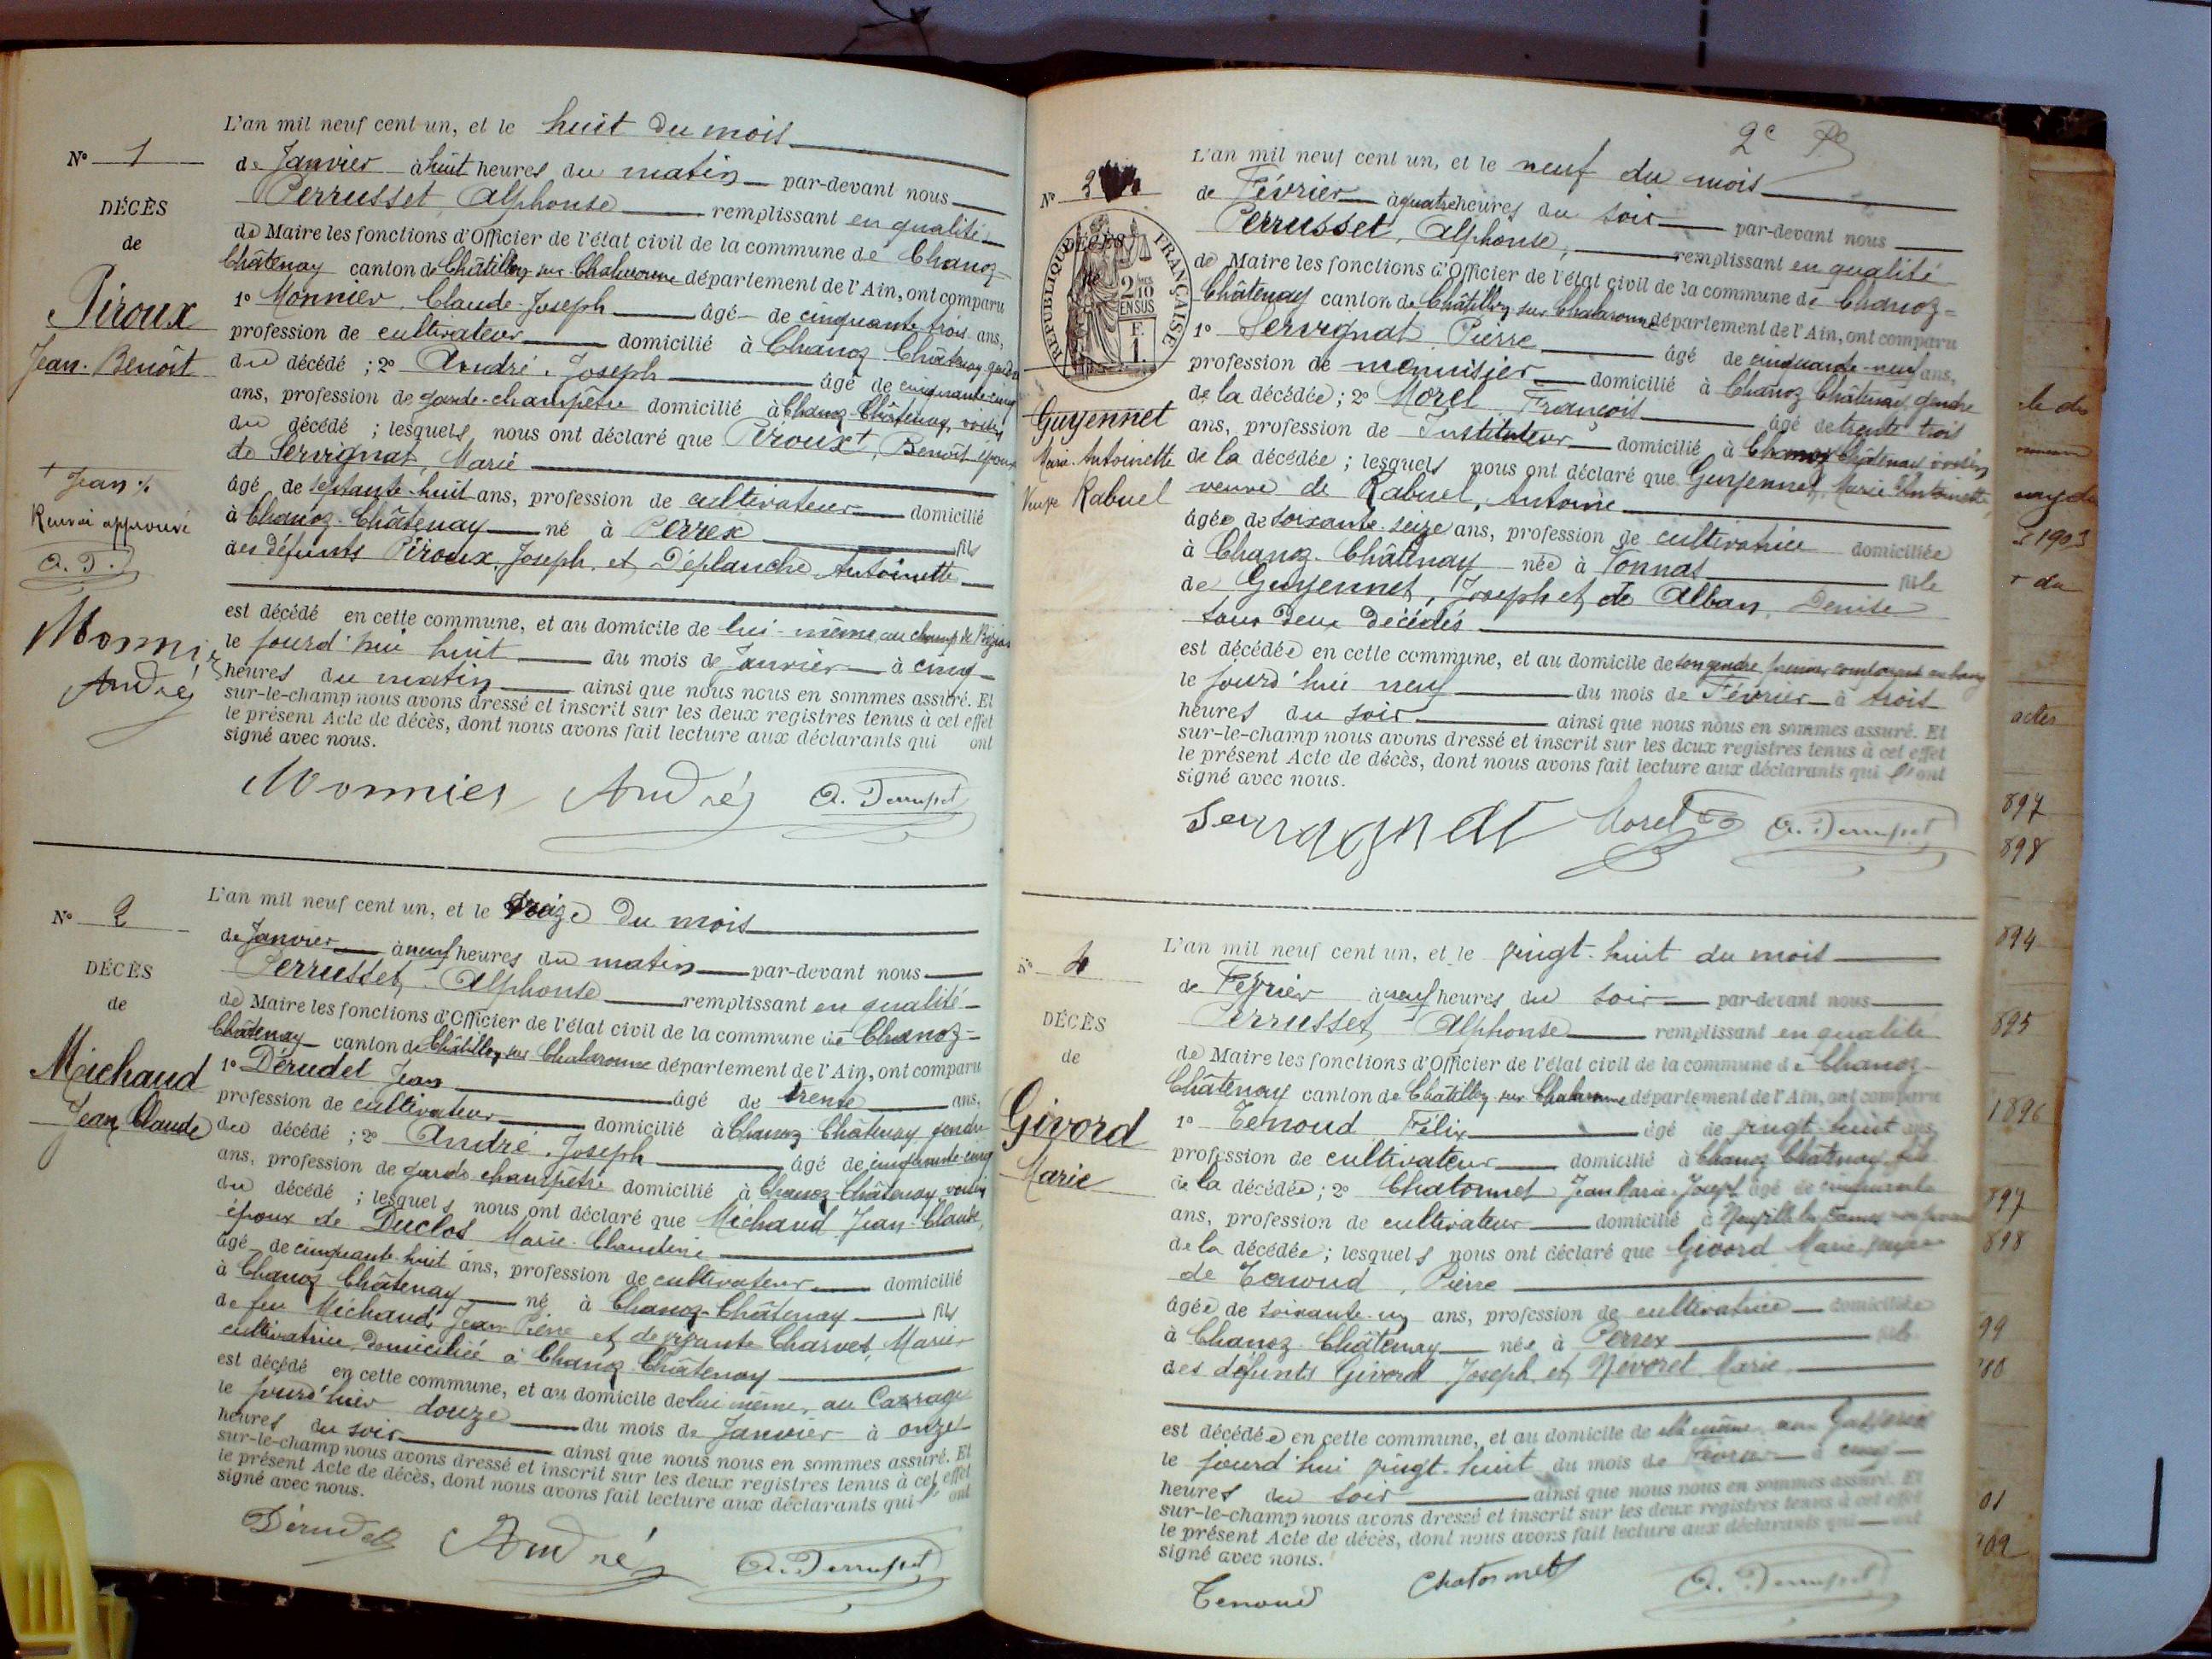 L'an mil neuf cent un, et le huit du mois
N° 1
de Janvier à huit heures du matin par-devant nous
DÉCÈS
de
Piroux
Jean-Benoît
Perrusset, Alphonse remplissant en qualité
de Maire les fonctions d'Officier de l'état civil de la commune de Chanoz-
Châtenay canton de Châtillon sur Chalaronne département de l'Ain, ont comparu
1° Monnier, Claude-Joseph âgé de cinquante trois ans,
profession de cultivateur domicilié à Chanoz-Châtenay gendre
du décédé ; 2° André, Joseph âgé de cinquante-cinq
ans, profession de garde-champêtre domicilié à Chanoz-Châtenay, voisin
du décédé ; lesquels nous ont déclaré que Piroux +, Benoît époux
de Servignat, Marie
+ Jean
Renvoi approuvé
A. P.
âgé de septante-huit ans, profession de cultivateur domicilié
à Chanoz-Châtenay né à Perrex fils
des défunts Piroux, Joseph, et Déplanche, Antoinette
est décédé en cette commune, et au domicile de lui-même, au champ de
le jourd'hui huit du mois de Janvier à cinq
heures du matin ainsi que nous nous en sommes assuré. Et
sur-le-champ nous avons dressé et inscrit sur les deux registres tenus à cet effet
le présent Acte de décès, dont nous avons fait lecture aux déclarants qui ont
signé avec nous.
Monnier
André
Monnier André A. Perrusset
L'an mil neuf cent un, et le treize du mois
N° 2
de Janvier à neuf heures du matin par-devant nous
DÉCÈS
de
Michaud
Jean Claude
Perrusset, Alphonse remplissant en qualité
de Maire les fonctions d'Officier de l'état civil de la commune de Chanoz-
Châtenay canton de Châtillon sur Chalaronne département de l'Ain, ont comparu
1° Dérudet Jean âgé de trente ans,
profession de cultivateur domicilié à Chanoz-Châtenay gendre
du décédé ; 2° André, Joseph âgé de cinquante-cinq
ans, profession de garde champêtre domicilié à Chanoz-Châtenay, voisin
du décédé ; lesquels nous ont déclaré que Michaud Jean-Claude,
époux de Duclos Marie-Claudine
âgé de cinquante-huit ans, profession de cultivateur domicilié
à Chanoz Châtenay né à Chanoz-Châtenay fils
de feu Michaud, Jean Pierre et de vivante Charvet, Marie
cultivatrice domiciliée à Chanoz-Châtenay
est décédé en cette commune, et au domicile de lui même, au Carrage
le jourd'hier douze du mois de Janvier à onze
heures du soir ainsi que nous nous en sommes assuré. Et
sur-le-champ nous avons dressé et inscrit sur les deux registres tenus à cet effet
le présent Acte de décès, dont nous avons fait lecture aux déclarants qui l' ont
signé avec nous.
Dérudet André A. Perrusset
2e
L'an mil neuf cent un, et le neuf du mois
N°
de Février à quatre heures du soir par-devant nous
DÉCÈS
de
RÉPUBLIQUE FRANÇAISE
2 10
EN SUS
F.
1.
Guyennet
Marie-Antoinette
Veuve Rabuel
Perrusset, Alphonse, remplissant en qualité
de Maire les fonctions d'Officier de l'état civil de la commune de Chanoz-
Châtenay canton de Châtillon sur Chalaronne département de l'Ain, ont comparu
1° Servignat Pierre âgé de cinquante-neuf ans,
profession de menuisier domicilié à Chanoz Châtenay, gendre
de la décédée ; 2° Morel François âgé de trente trois
ans, profession de Instituteur domicilié à Chanoz Châtenay voisin
de la décédée ; lesquels nous ont déclaré que Guyennet, Marie Antoinette,
veuve de Rabuel, Antoine
âgée de soixante-seize ans, profession de cultivatrice domiciliée
à Chanoz-Châtenay née à Vonnas fille
de Guyennet, Joseph et de Alban, Denise
tous deux décédés
est décédée en cette commune, et au domicile de son gendre premier comparant au bourg
le jourd'hui neuf du mois de Février à trois
heures du soir ainsi que nous nous en sommes assuré. Et
sur-le-champ nous avons dressé et inscrit sur les deux registres tenus à cet effet
le présent Acte de décès, dont nous avons fait lecture aux déclarants qui l'ont
signé avec nous.
Servignat Morel A. Perrusset
L'an mil neuf cent un, et le vingt-huit du mois
N° 4
de Février à neuf heures du soir par-devant nous
DÉCÈS
de
Givord
Marie
Perrusset, Alphonse remplissant en qualité
de Maire les fonctions d'Officier de l'état civil de la commune de Chanoz-
Châtenay canton de Châtillon sur Chalaronne département de l'Ain, ont comparu
1° Tenoud Félix âgé de vingt-huit ans,
profession de cultivateur domicilié à Chanoz Châtenay fils
de la décédée ; 2° Chatonnet Jean Marie Joseph âgé de cinquante
ans, profession de cultivateur domicilié à Neuville les Dames
de la décédée ; lesquels nous ont déclaré que Givord Marie
de Tenoud, Pierre
âgée de soixante-un ans, profession de cultivatrice domiciliée
à Chanoz Châtenay née à Perrex fille
des défunts Givord Joseph, et Nevoret Marie
est décédée en cette commune, et au domicile de elle même aux
le jourd'hui vingt-huit du mois de Février à cinq
heures du soir ainsi que nous nous en sommes assuré. Et
sur-le-champ nous avons dressé et inscrit sur les deux registres tenus à cet effet
le présent Acte de décès, dont nous avons fait lecture aux déclarants qui ont
signé avec nous.
Tenoud Chatonnet A. Perrusset
1903
du
actes
897
898
894
895
1896
897
898
99
01
902